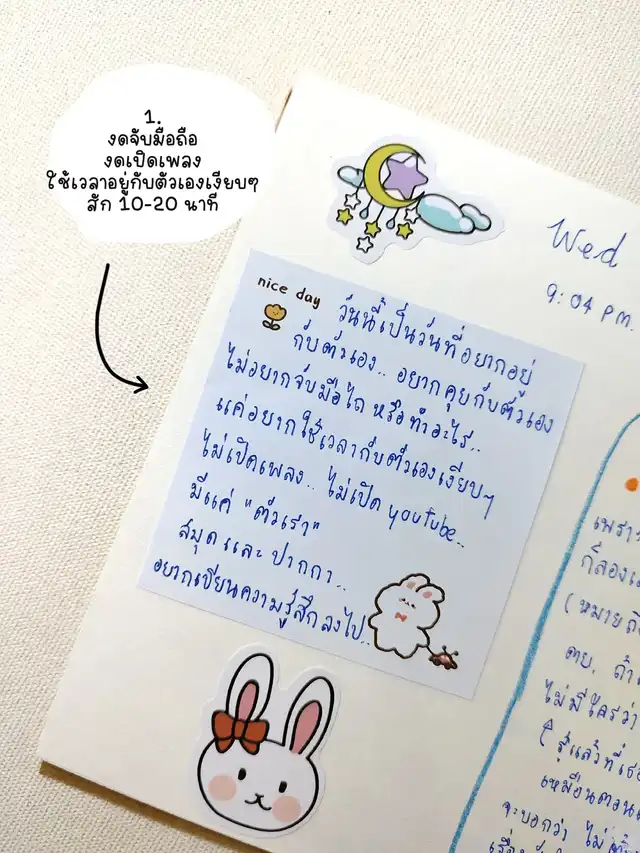 1.
งดจับมือถือ
งดเปิดเพลง
ใช้เวลาอยู่กับตัวเองเงียบๆ
สัก 10-20 นาที
Wed
9:04 PM.
nice day
วันนี้เป็นวันที่อยากอยู่
กับตัวเอง.. อยากคุยกับตัวเอง
ไม่อยากจับมือไถ หรือทำอะไร..
แค่อยากใช้เวลากับตัวเองเงียบๆ
ไม่เปิดเพลง.. ไม่เปิด youtube..
มีแค่ "ตัวเรา"
สมุดและ ปากกา..
อยากเขียนความรู้สึกลงไป..
เพรา
ก็ลอง
(หมายถึ
ตาย, ถ้า
ไม่มีใครว่า
รู้แล้วที่เธอ
เหมือนตอน
จะบอกว่า ไม่